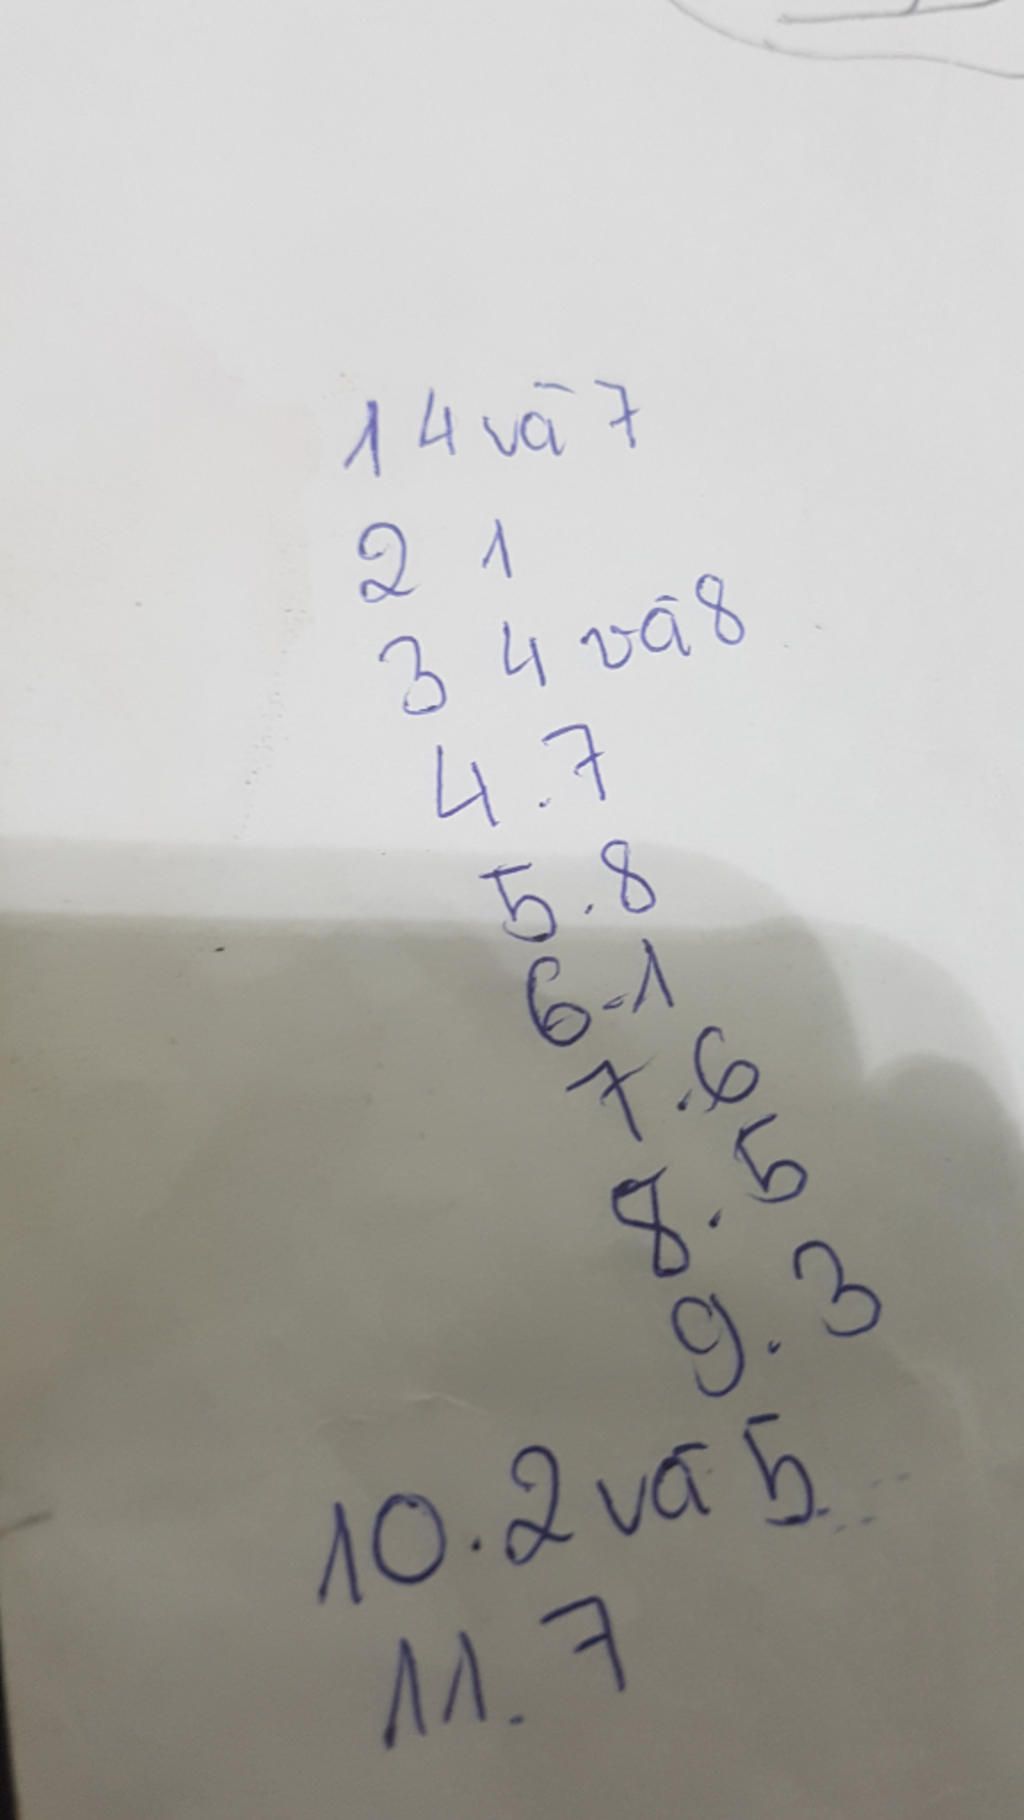 1 4 và 7
2 1
3 4 và 8
4.7
5.8
6-1
7.6
8.5
9.3
10.2 và 5
11.7